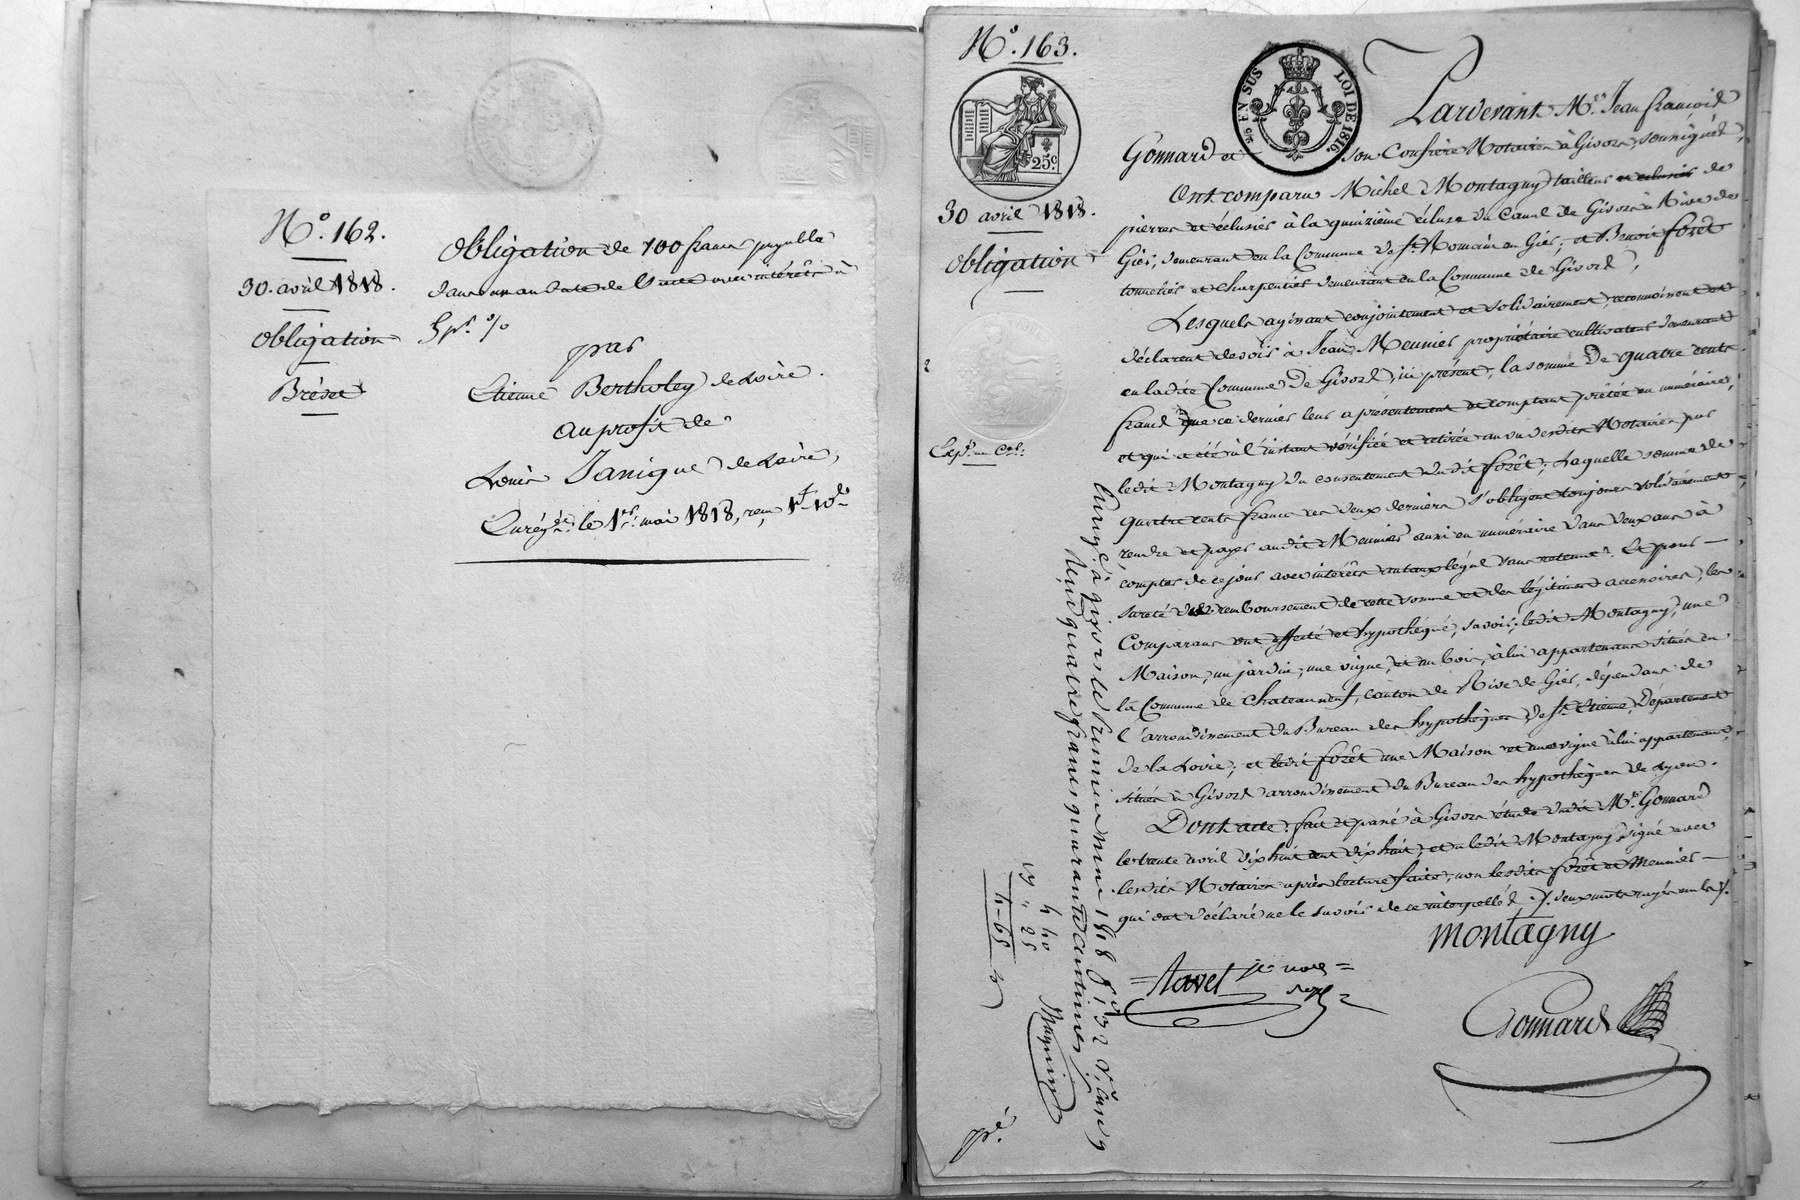 N.° 162.
30. avril 1818.
Obligation
Brevet
Obligation de 100 francs payable
dans un an date de l'acte avec intérêts à
5 p.r %
par
Etienne Bertholey de Loire.
au profit de
Louis Janique de Loire,
Enrég.ré le 1.er mai 1818, reçu 1.f 10.c
N.° 163.
25.c
30 avril 1818.
Obligation
Exp.on
EN SUS LOI DE 1816.
Pardevant M.e Jean François
Gonnard et son Confrère Notaires à Givors, soussignés,
Ont comparu Michel Montagny tailleur de
pierres et éclusier à la quinzième écluse du Canal de Givors à Rive de
Gier, demeurant en la Commune de S.t Romain en Gier; et Benoit forêt
tonnelier et charpentier demeurant en la Commune de Givors,
Lesquels agissant conjointement et solidairement, reconnoissent et
déclarent devoir à Jean Meunier propriétaire cultivateur demeurant
en ladite Commune de Givors, ici présent, la somme de quatre cents
francs que ce dernier leur a présentement et comptant prêtée en numéraire,
et qui a été à l'instant vérifiée et retirée au vu desdits Notaires par
ledit Montagny du consentement dudit forêt; Laquelle somme de
quatre cents francs ces deux derniers s'obligent toujours solidairement
rendre et payer audit Meunier aussi en numéraire dans deux ans à
compter de ce jour avec intérêts au taux légal sans retenue. Et pour
sureté du remboursement de cette somme et des légitimes accessoires, les
Comparans ont affecté et hypothéqué, savoir; ledit Montagny, une
Maison, un jardin, une vigne, et un bois, à lui appartenans situés en
la Commune de Chateauneuf, canton de Rive de Gier, dépendans de
l'arrondissement du Bureau des hypothèques de S.t Etienne, Département
de la Loire; et ledit forêt une Maison et une vigne à lui appartenans,
situés à Givors arrondissement du Bureau des hypothèques de Lyon.
Dont acte: fait et passé à Givors étude dudit M.e Gonnard
le trente avril dix huit cent dix huit; et a ledit Montagny signé avec
lesdits Notaires après lecture faite, non lesdits forêt et Meunier
qui ont déclaré ne le savoir de ce interpellés. deux mots rayés nuls.
montagny
Tavel
Gonnard
Enregé à givors le premier mai 1818 f.° 32
reçu quatre francs quarante centimes
4 40
25
4-65